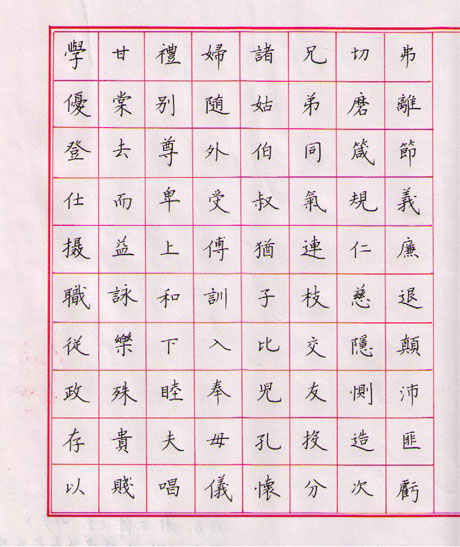 學優登仕摄職從政存以
甘棠去而益詠樂殊貴賤
禮别尊卑上和下睦夫唱
婦随外受傅訓入奉母儀
諸姑伯叔猶子比兒孔懷
兄弟同氣連枝交友投分
切磨箴規仁慈隱惻造次
弗離節義廉退顛沛匪虧